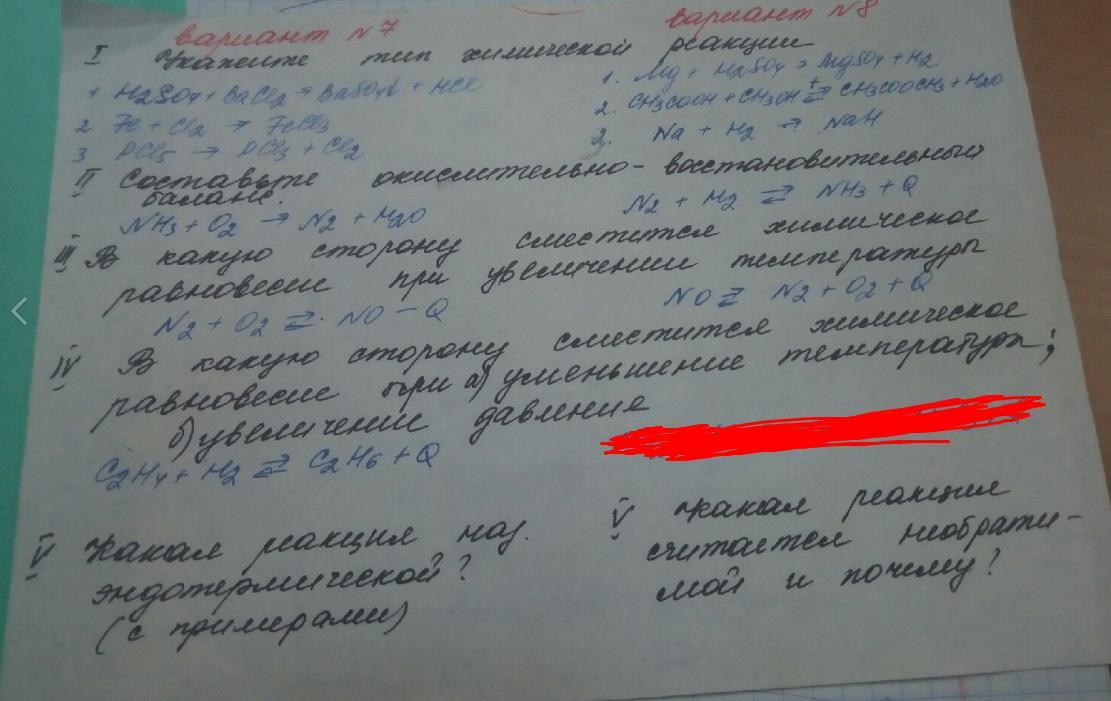 вариант №7 вариант №8
I Укажите тип химической реакции
1 H2SO4 + BaCl2 → BaSO4↓ + HCl
1. Mg + H2SO4 → MgSO4 + H2
2 Fe + Cl2 → FeCl3
2. CH3COOH + CH3OH ⇄ CH3COOCH3 + H2O
3 PCl5 → PCl3 + Cl2
2. Na + H2 → NaH
II Составьте окислительно-восстановительный
баланс.
NH3 + O2 → N2 + H2O
N2 + H2 ⇄ NH3 + Q
III В какую сторону сместится химическое
равновесие при увеличении температуры
N2 + O2 ⇄ NO - Q
NO ⇄ N2 + O2 + Q
IV В какую сторону сместится химическое
равновесие при а) уменьшение температуры;
б) увеличении давления
C2H4 + H2 ⇄ C2H6 + Q
V Какая реакция наз.
эндотермической?
(с примерами)
V Какая реакция
считается необрати-
мой и почему?